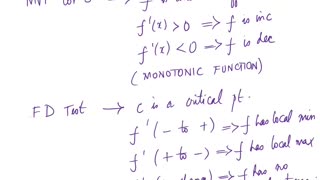 MVT
f'(x) > 0 => f is inc
f'(x) < 0 => f is dec
(MONOTONIC FUNCTION)
FD Test → c is a critical pt.
f'(- to +) => f has local min
f'(+ to -) => f has local max
=> f has no